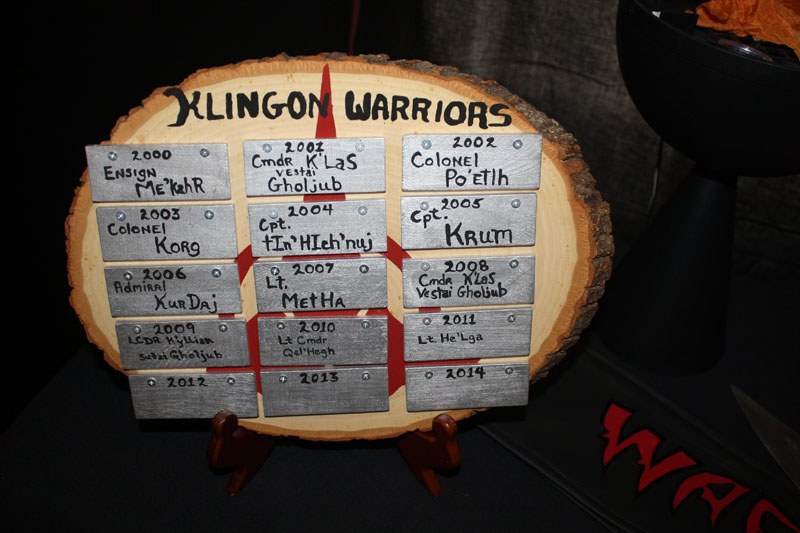 KLINGON WARRIORS
2000
ENSIGN
ME'KEHR
2001
CmdR K'LaS
VEStai
Gholjub
2002
COLONEl
PO'ETlh
2003
COLONEl
KORG
2004
Cpt.
tIn'HIch'nuj
2005
Cpt.
KRUM
2006
ADMIRAl
KURDAj
2007
Lt.
MetHa
2008
CmdR K'LaS
VEStai Gholjub
2009
LCDR K'yllian
Sutai Gholjub
2010
Lt Cmdr
Qel'Hegh
2011
Lt. He'Lga
2012
2013
2014